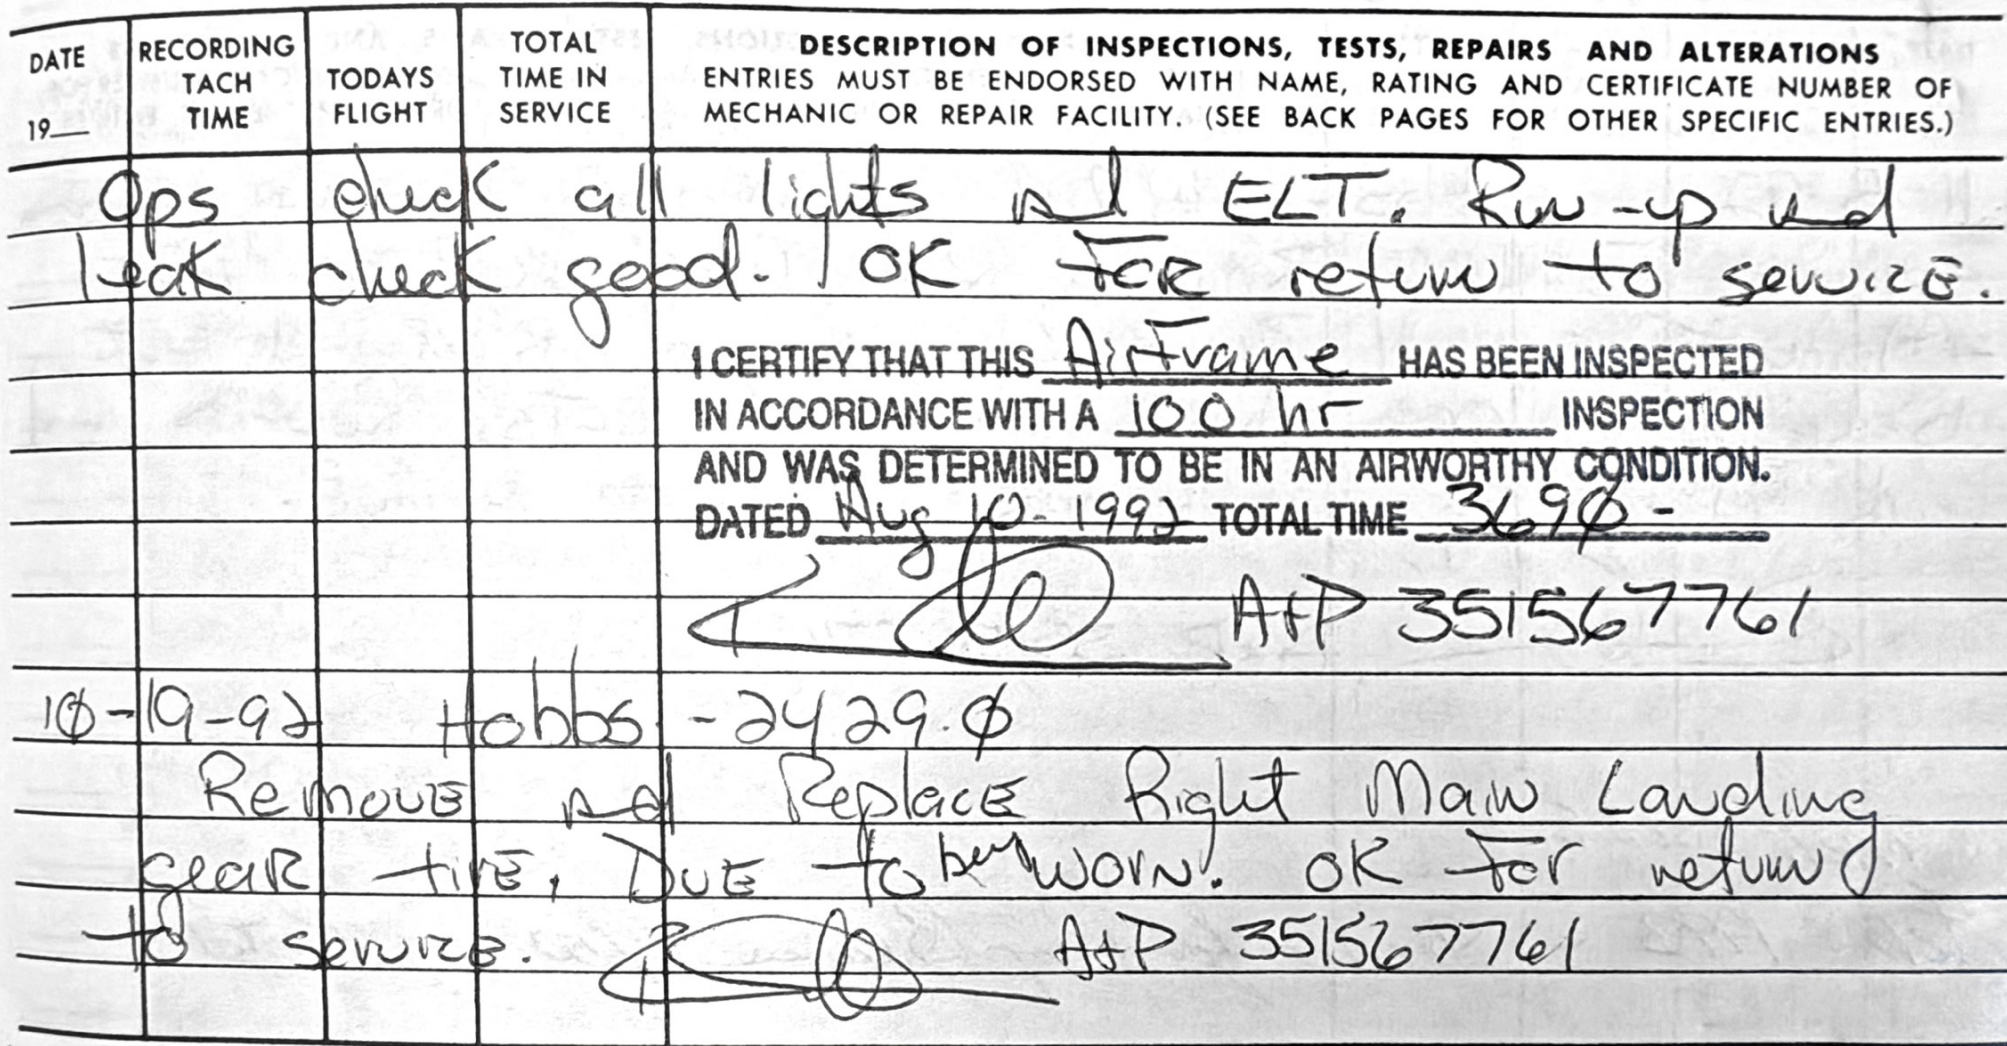 DATE RECORDING TACH TIME TODAYS FLIGHT TOTAL TIME IN SERVICE DESCRIPTION OF INSPECTIONS, TESTS, REPAIRS AND ALTERATIONS
19__ ENTRIES MUST BE ENDORSED WITH NAME, RATING AND CERTIFICATE NUMBER OF
MECHANIC OR REPAIR FACILITY. (SEE BACK PAGES FOR OTHER SPECIFIC ENTRIES.)
Ops check all lights and ELT. Run-up and
leak check good. OK FOR return to service.
I CERTIFY THAT THIS Airframe HAS BEEN INSPECTED
IN ACCORDANCE WITH A 100 hr INSPECTION
AND WAS DETERMINED TO BE IN AN AIRWORTHY CONDITION.
DATED Aug 10-1992 TOTAL TIME 3690-
A+P 351567761
10-19-92 Hobbs -2429.0
Remove and Replace Right Main Landing
gear tire, Due to being worn. OK For return
to service. A+P 351567761